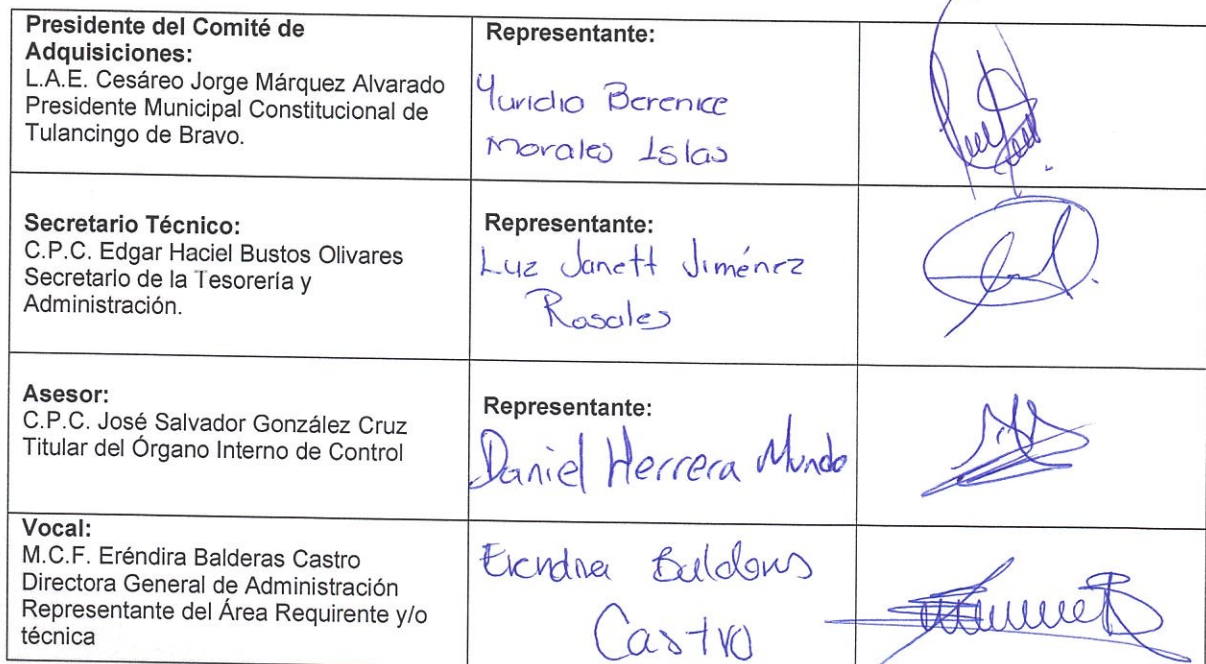 Presidente del Comité de
Adquisiciones:
L.A.E. Cesáreo Jorge Márquez Alvarado
Presidente Municipal Constitucional de
Tulancingo de Bravo.
Representante:
Yuridia Berenice
Morales Islas
Secretario Técnico:
C.P.C. Edgar Haciel Bustos Olivares
Secretario de la Tesorería y
Administración.
Representante:
Luz Janett Jiménez
Rosales
Asesor:
C.P.C. José Salvador González Cruz
Titular del Órgano Interno de Control
Representante:
Daniel Herrera Mundo
Vocal:
M.C.F. Eréndira Balderas Castro
Directora General de Administración
Representante del Área Requirente y/o
técnica
Erendira Balderas
Castro